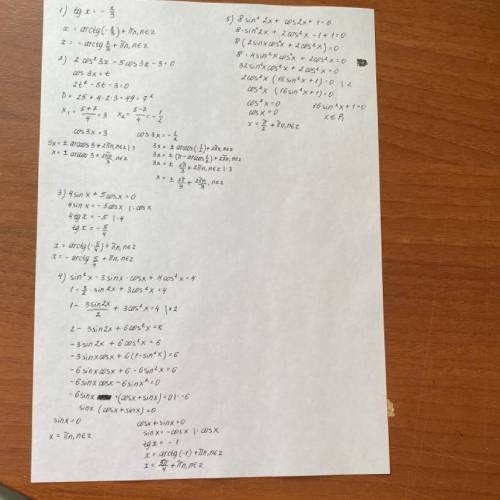 1) tg x = - 5/3
x = arctg(-5/3) + πn, n∈z
x = - arctg 5/3 + πn, n∈z
2) 2 cos² 3x - 5 cos 3x - 3 = 0
cos 3x = t
2t² - 5t - 3 = 0
D = 25 + 4·2·3 = 49 = 7²
x₁ = (5+7)/4 = 3 x₂ = (5-7)/4 = - 1/2
cos 3x = 3 cos 3x = - 1/2
3x = ± arccos 3 + 2πn, n∈z |:3 3x = ± arccos(-1/2) + 2πn, n∈z
x = ± arccos 3 + 2πn/3, n∈z 3x = ± (π - arccos 1/2) + 2πn, n∈z
3x = ± 2π/3 + 2πn, n∈z |:3
x = ± 2π/9 + 2πn/3, n∈z
3) 4 sin x + 5 cos x = 0
4 sin x = -5 cos x |: cos x
4 tg x = -5 |:4
tg x = - 5/4
x = arctg(-5/4) + πn, n∈z
x = - arctg 5/4 + πn, n∈z
4) sin² x - 3 sin x · cos x + 4 cos² x = 4
1 - 3/2 · sin 2x + 3 cos² x = 4
1 - 3 sin 2x/2 + 3 cos² x = 4 |×2
2 - 3 sin 2x + 6 cos² x = 8
-3 sin 2x + 6 cos² x = 6
-3 sin x cos x + 6 (1 - sin² x) = 6
-6 sin x cos x + 6 - 6 sin² x = 6
-6 sin x cos x - 6 sin² x = 0
-6 sin x · (cos x + sin x) = 0 |: -6
sin x (cos x + sin x) = 0
sin x = 0 cos x + sin x = 0
x = πn, n∈z sin x = - cos x |: cos x
tg x = - 1
x = arctg(-1) + πn, n∈z
x = 3π/4 + πn, n∈z
5) 8 sin² 2x + cos 2x + 1 = 0
8 · sin² 2x + 2 cos² x - 1 + 1 = 0
8 (2 sin x cos x)² + 2 cos² x = 0
8 · 4 sin² x cos² x + 2 cos² x = 0
32 sin² x cos² x + 2 cos² x = 0
2 cos² x (16 sin² x + 1) = 0 |:2
cos² x (16 sin² x + 1) = 0
cos² x = 0 16 sin² x + 1 = 0
cos x = 0 x ∉ R
x = π/2 + πn, n∈z